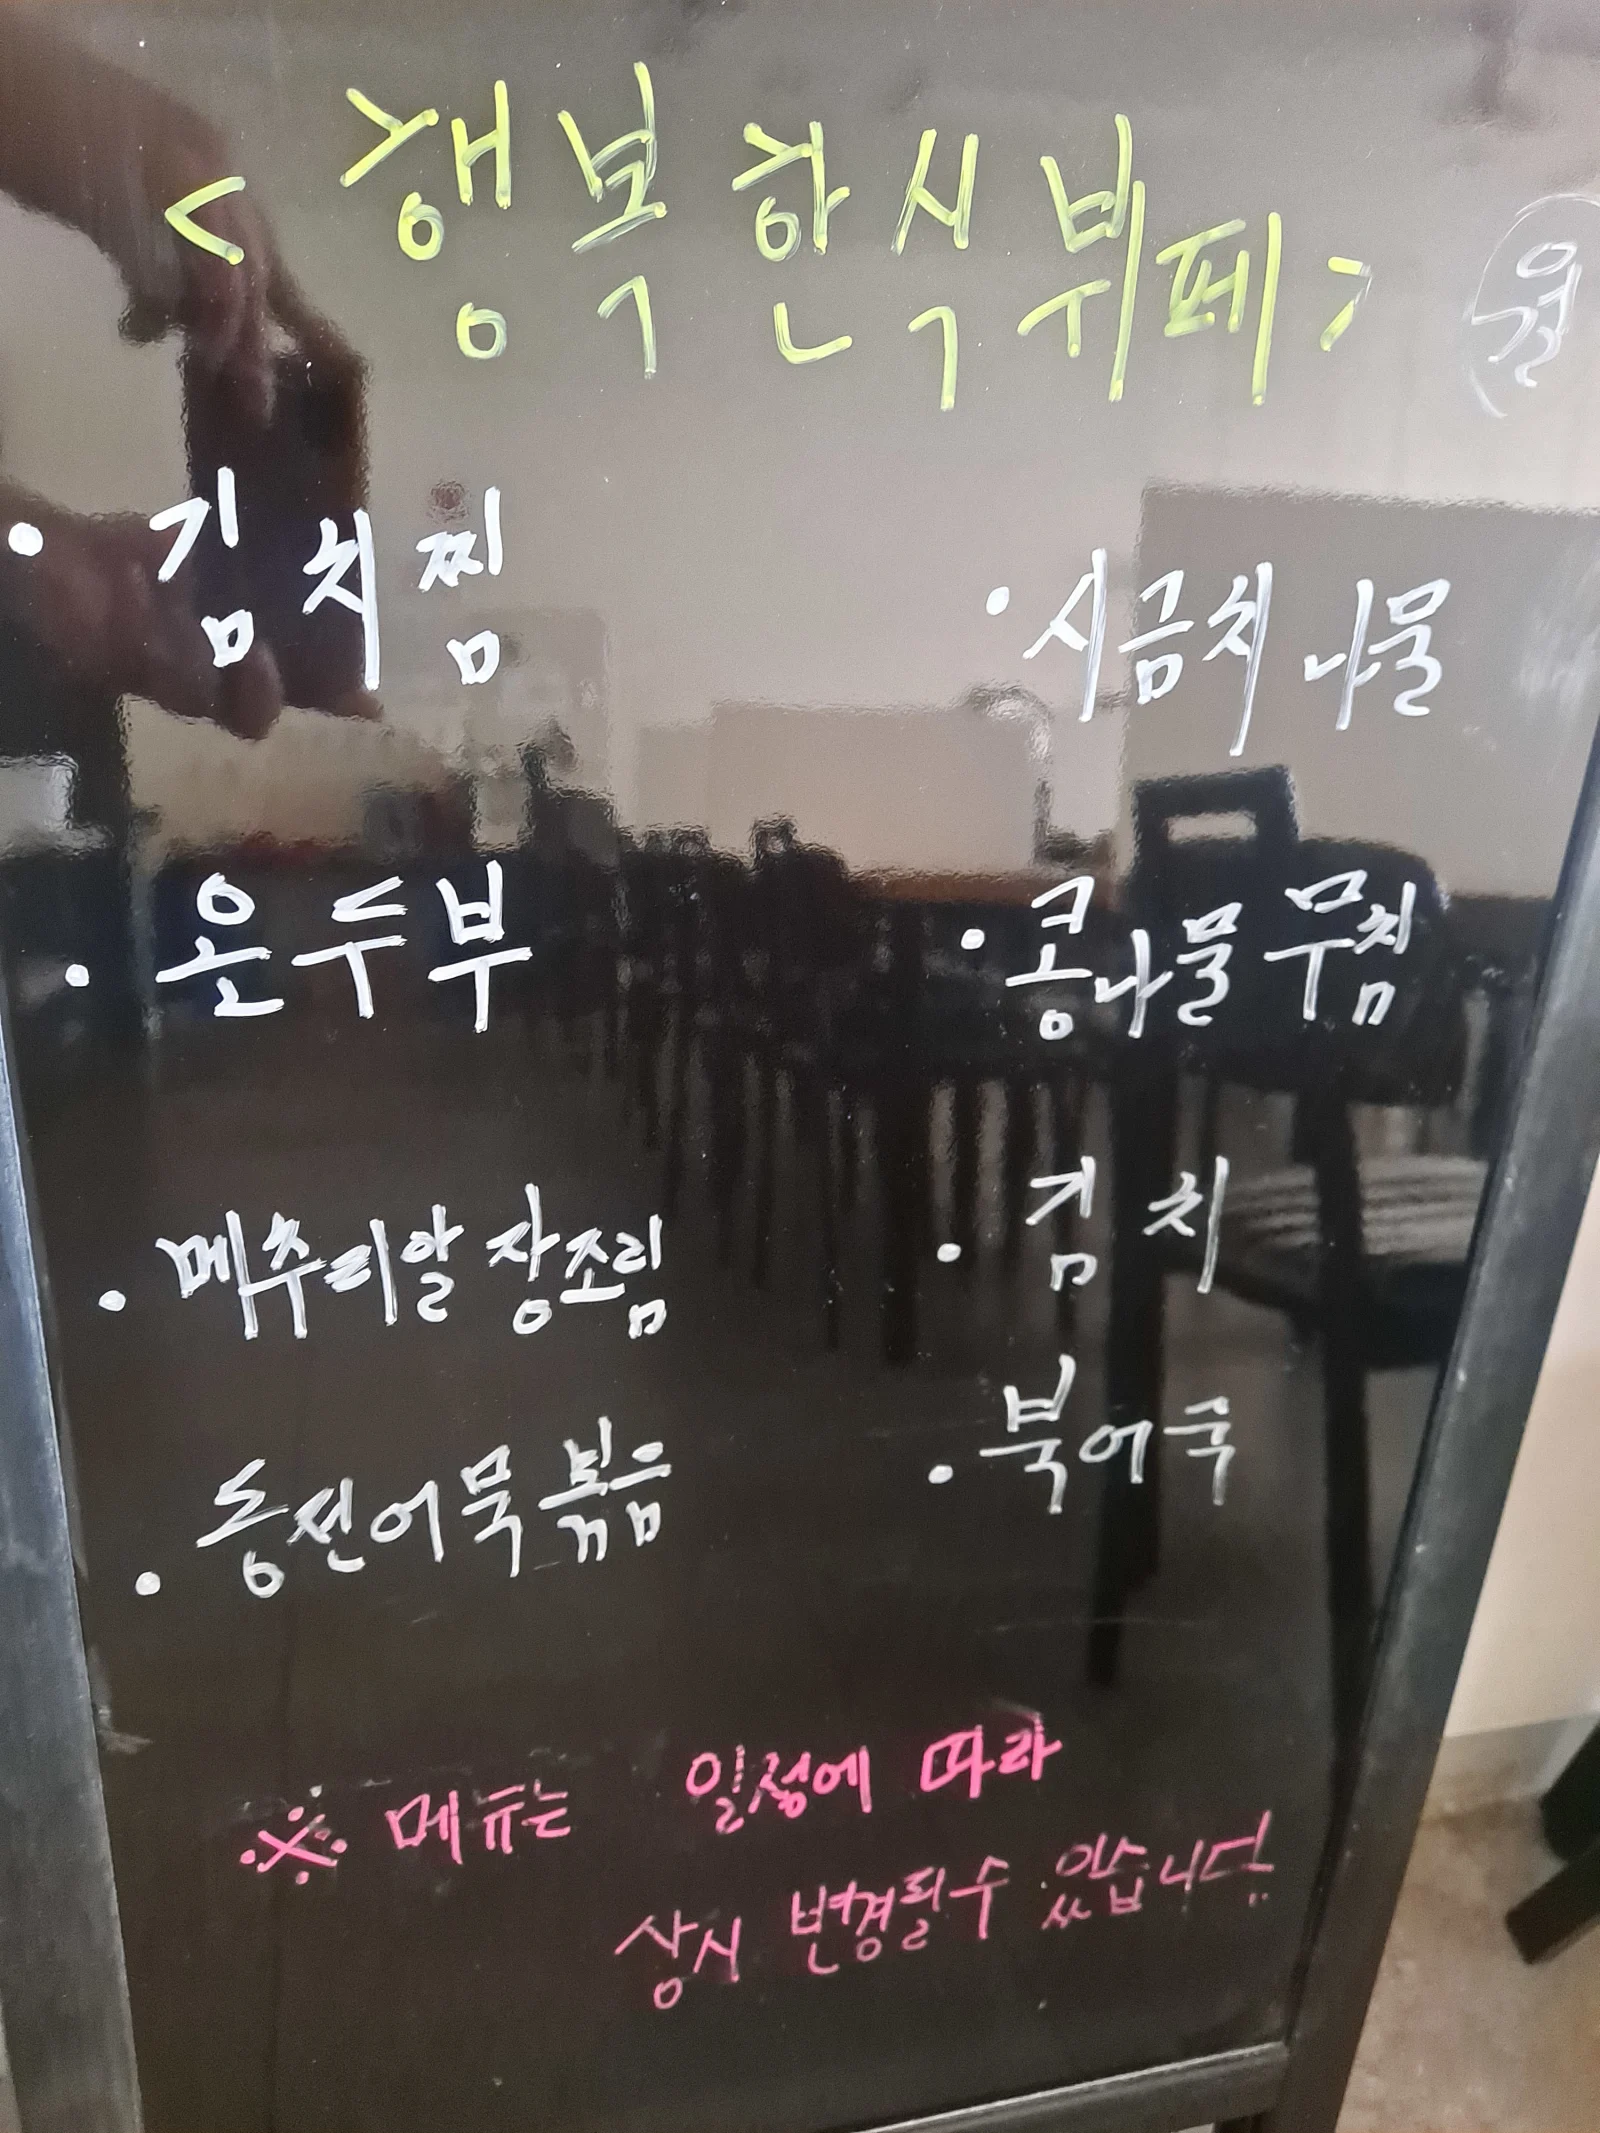 <행복한식뷔페> 월
· 김치찜
· 시금치 나물
· 온두부
· 콩나물 무침
· 메추리알 장조림
· 김치
· 동전어묵볶음
· 북어국
※ 메뉴는 일정에 따라
상시 변경될 수 있습니다..